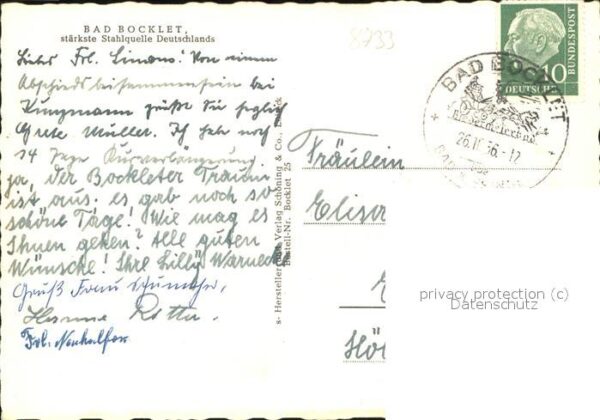 BAD BOCKLET,
stärkste Stahlquelle Deutschlands
Liebes Frl. Simons! Von einem
Abschiedsbeisammensein bei
Kunzmann grüßt Sie
Gute Müller. Ich hab noch
14 Tage Kurverlängerung.
ja, der Bockleter Traum
ist aus. es gab noch so
schöne Tage! Wie mag es
Ihnen gehen? Alle guten
Wünsche! Ihre Lilly Warneck
Gruß Frau
Hanna
Frl. Neuhalfer
s- Hersteller Verlag Schöning & Co., 
Bestell-Nr. Bocklet 25
8733
10
DEUTSCHE
BUNDESPOST
BAD BOCKLET
Fräulein
Elisa
Hö
privacy protection (c)
Datenschutz